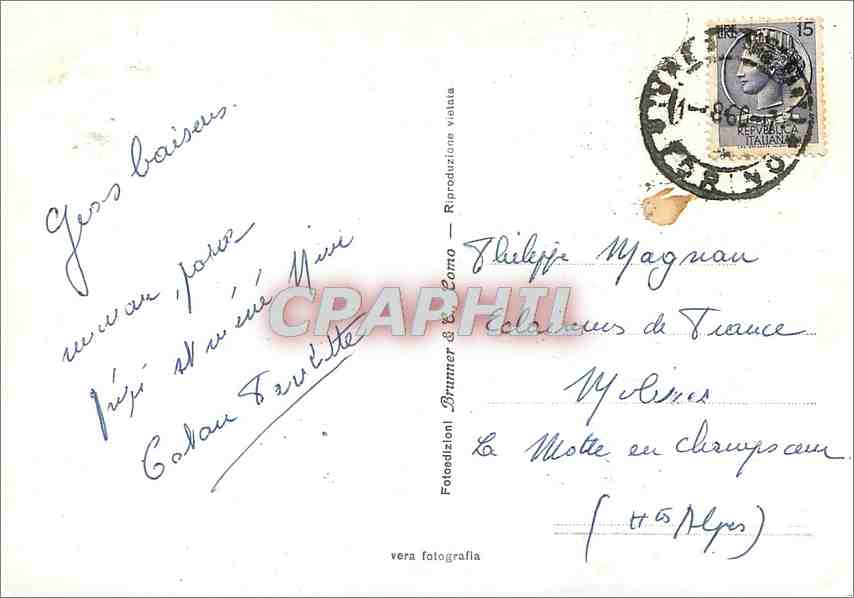 Gros baisers.
maman, papa
pépé et mémé Mimi
Fotoedizioni Brunner & C. Como — Riproduzione vietata
LIRE 15
REPVBBLICA
ITALIANA
TORINO
CPARHIL
Philippe Magnan
Eclaireurs de France
Molines
La Motte en Champsaur
(Htes Alpes)
vera fotografia